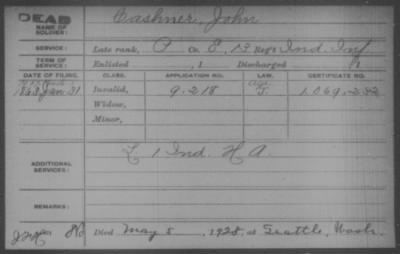 DEAD
NAME OF SOLDIER: Cashner, John
SERVICE: Late rank, P Co. E, 13 Reg't Ind. Inf
TERM OF SERVICE: Enlisted , 1 Discharged , 1
DATE OF FILING. CLASS. APPLICATION NO. LAW. CERTIFICATE NO.
Jan 31 Invalid, 9.218 1.069.232
Widow,
Minor,
ADDITIONAL SERVICES: L 1 Ind. H A.
REMARKS:
Died May 5, 1928, at Seattle, Wash.